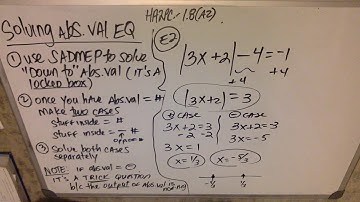 Solving Abs. Val EQ
HA2PC - 1.8(A2)
① use SADMEP to solve
"Down to" Abs. val (it's A
locked box)
② once you have Abs.val = #
make two cases
stuff inside = #
stuff inside = #
opposite
③ Solve both cases
separately
NOTE: if abs.val = ⊖
it's a TRICK QUESTION
b/c the output of abs.val is
not neg
E2
|3x+2| - 4 = -1
+4 +4
|3x+2| = 3
⊕ CASE
3x+2=3
-2 -2
3x = 1
x = 1/3
⊖ CASE
3x+2=-3
3x=-5
x = -5/3
-5/3 1/3